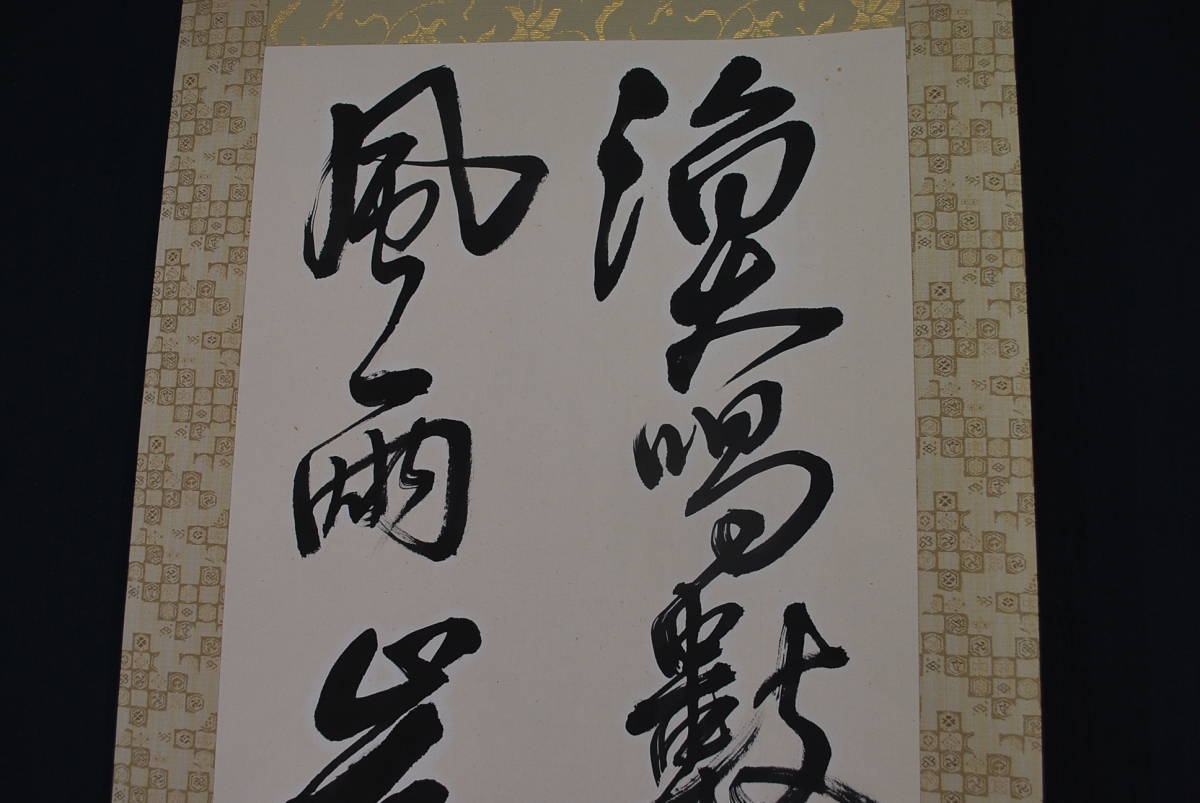 漁唱數
風雨